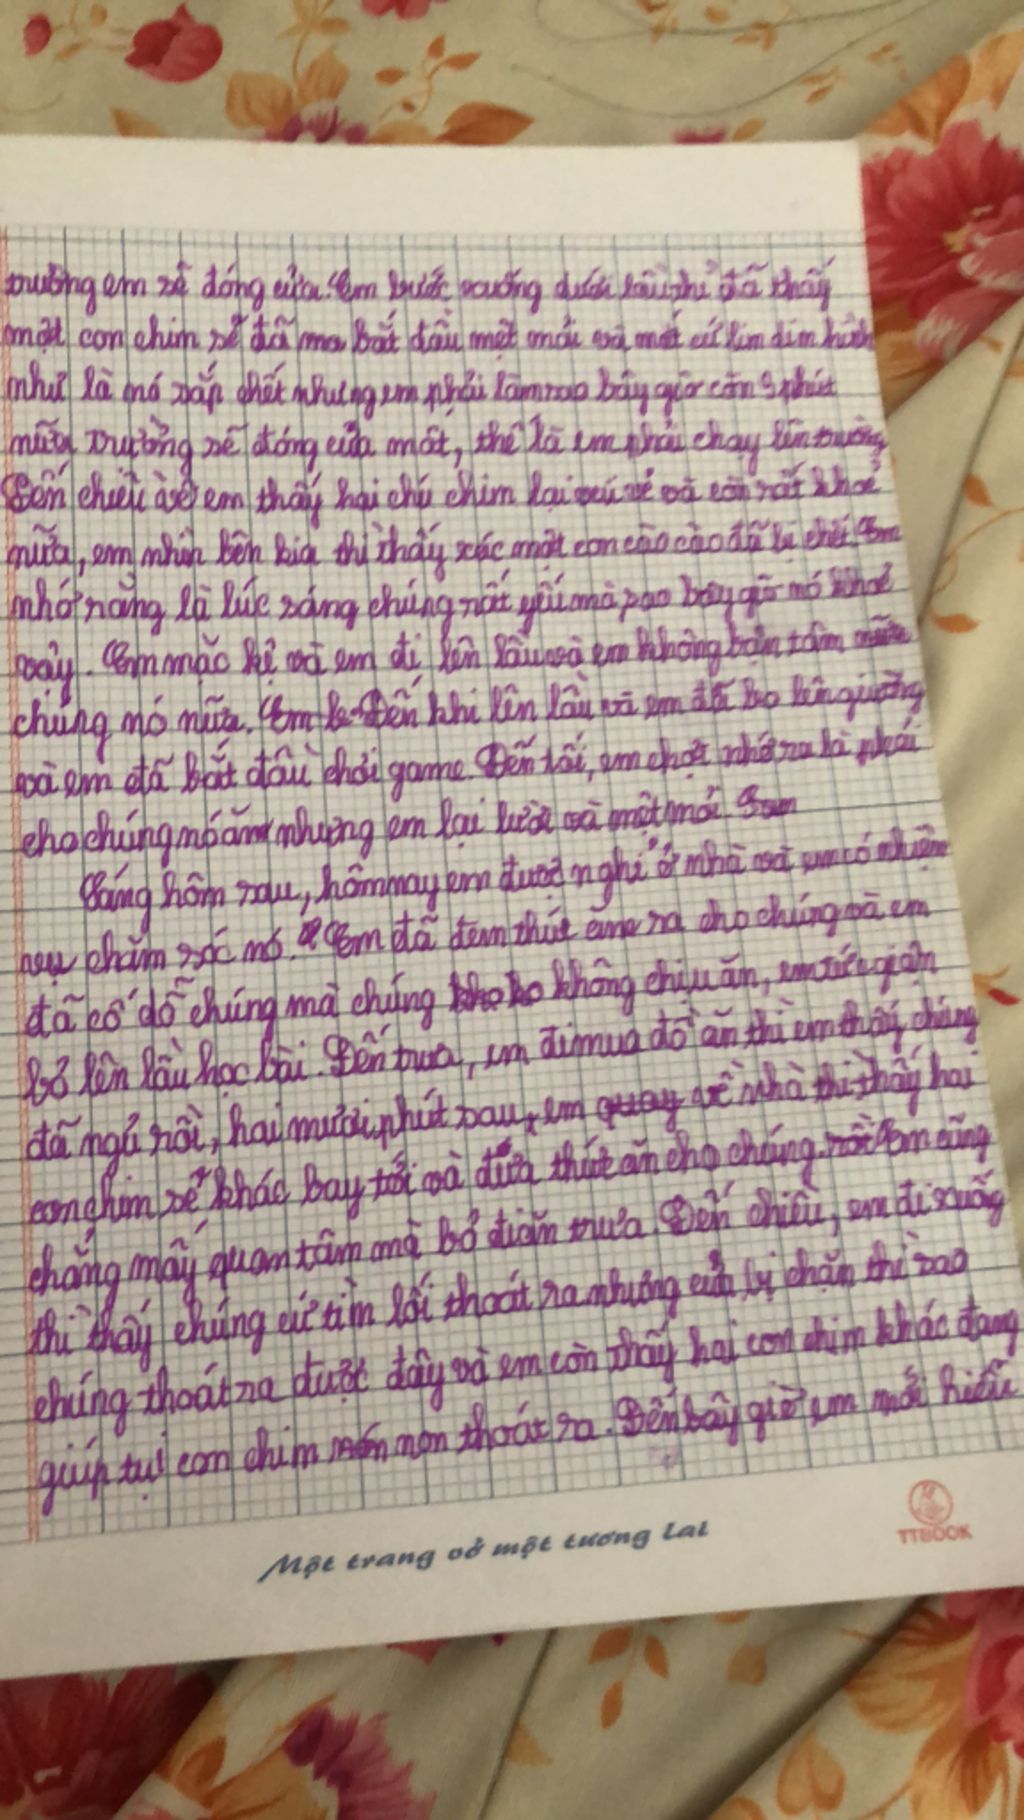 trường em sẽ đóng cửa. Em bước xuống dưới lầu thì đã thấy
một con chim sẻ đã ma bắt đầu mệt mỏi và mắt cứ lim dim hình
như là nó sắp chết nhưng em phải làm sao bây giờ còn 9 phút
nữa trường sẽ đóng cửa mất, thế là em phải chạy lên trường
Đến chiều về em thấy hai chú chim lại vui vẻ và còn rất khoẻ
nữa, em nhìn bên kia thì thấy xác một con cào cào đã bị chết. Em
nhớ rằng là lúc sáng chúng rất yếu mà sao bây giờ nó khoẻ
vậy. Em mặc kệ và em đi lên lầu và em không bận tâm
chúng nó nữa. Đến khi lên lầu và em đã bo lên giường
và em đã bắt đầu chơi game. Đến tối, em chợt nhớ ra là phải
cho chúng nó ăn nhưng em lại lười và mệt mỏi.
Sáng hôm sau, hôm nay em được nghỉ ở nhà và em có nhiệm
vụ chăm sóc nó. Em đã đem thức ăn ra cho chúng và em
đã cố dỗ chúng mà chúng không chịu ăn, em tức giận
bỏ lên lầu học bài. Đến trưa, em đi mua đồ ăn thì em thấy chúng
đã ngủ rồi, hai mươi phút sau, em quay về nhà thì thấy hai
con chim sẻ khác bay tới và đưa thức ăn cho chúng. Em cũng
chẳng mấy quan tâm mà bỏ đi ăn trưa. Đến chiều, em đi xuống
thì thấy chúng cứ tìm lối thoát ra nhưng cửa bị chặn thì sao
chúng thoát ra được đây và em còn thấy hai con chim khác đang
giúp tụi con chim non thoát ra. Đến bây giờ em mới hiểu
Một trang vở một tương lai
TTBOOK